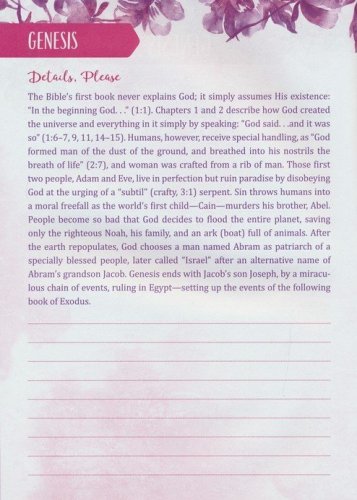 GENESIS
Details, Please
The Bible's first book never explains God; it simply assumes His existence:
"In the beginning God. . ." (1:1). Chapters 1 and 2 describe how God created
the universe and everything in it simply by speaking: "God said. . .and it was
so" (1:6–7, 9, 11, 14–15). Humans, however, receive special handling, as "God
formed man of the dust of the ground, and breathed into his nostrils the
breath of life" (2:7), and woman was crafted from a rib of man. Those first
two people, Adam and Eve, live in perfection but ruin paradise by disobeying
God at the urging of a "subtil" (crafty, 3:1) serpent. Sin throws humans into
a moral freefall as the world's first child—Cain—murders his brother, Abel.
People become so bad that God decides to flood the entire planet, saving
only the righteous Noah, his family, and an ark (boat) full of animals. After
the earth repopulates, God chooses a man named Abram as patriarch of a
specially blessed people, later called "Israel" after an alternative name of
Abram's grandson Jacob. Genesis ends with Jacob's son Joseph, by a miracu-
lous chain of events, ruling in Egypt—setting up the events of the following
book of Exodus.